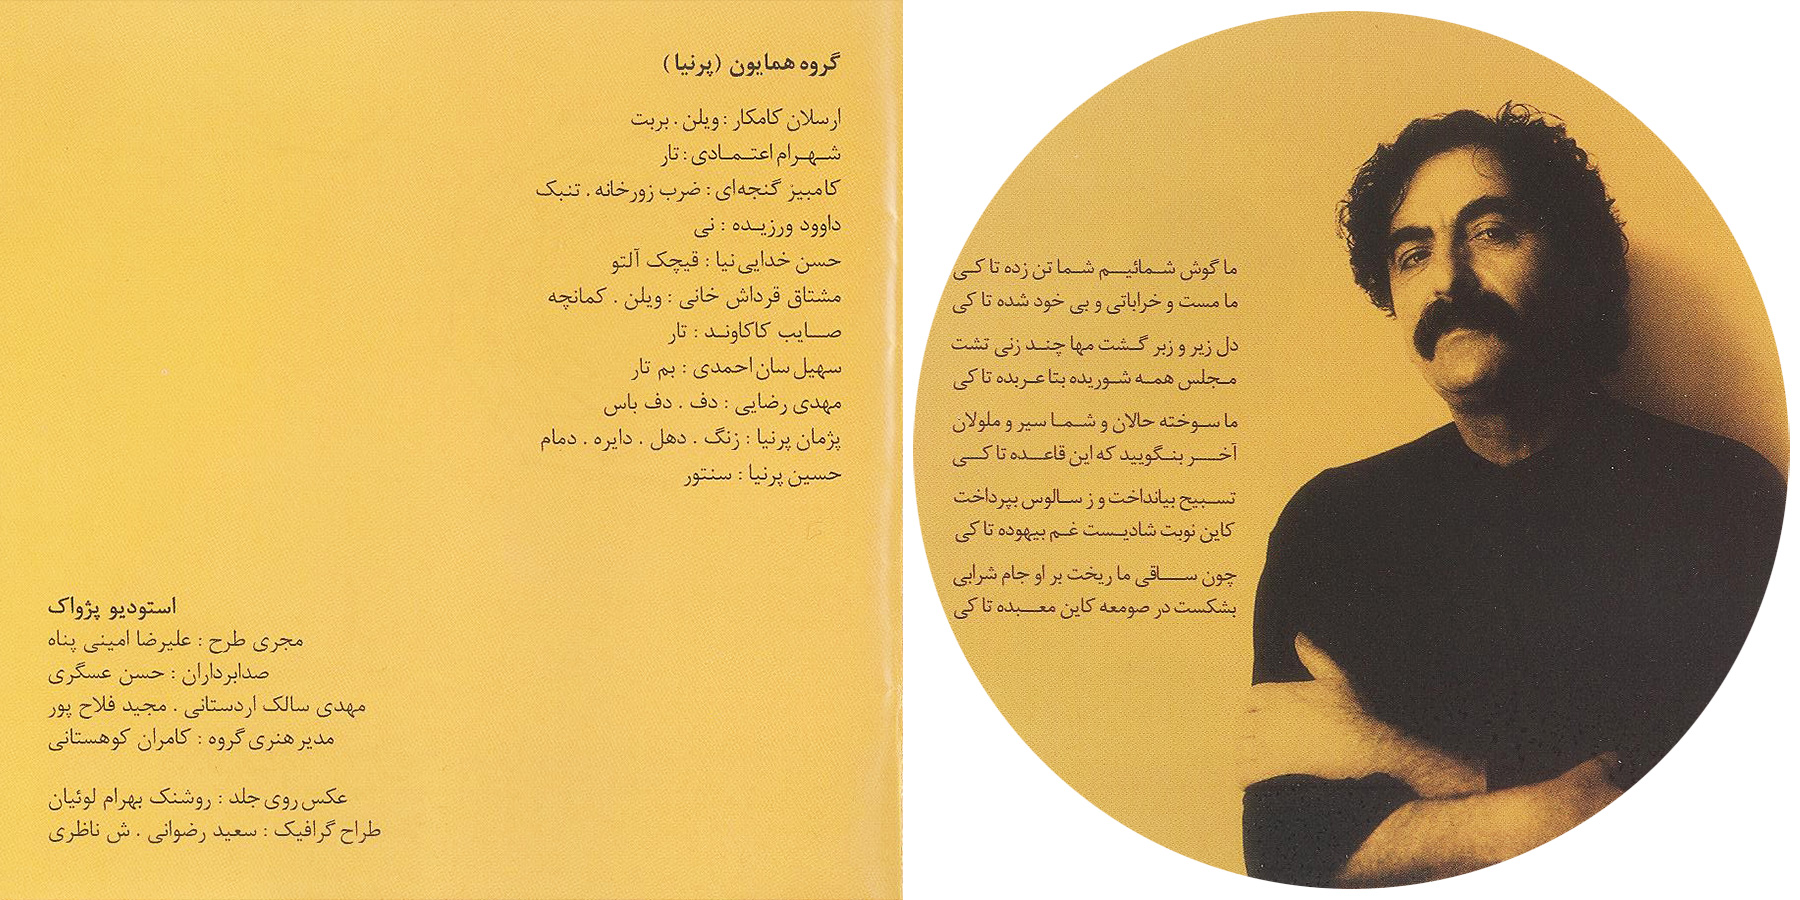 گروه همایون (پرنیا)
ارسلان کامکار : ویلن . بربت
شهرام اعتمادی : تار
کامبیز گنجه‌ای : ضرب زورخانه . تنبک
داوود ورزیده : نی
حسن خدایی‌نیا : قیچک آلتو
مشتاق قرداش خانی : ویلن . کمانچه
صایب کاکاوند : تار
سهیل سان احمدی : بم تار
مهدی رضایی : دف . دف باس
پژمان پرنیا : زنگ . دهل . دایره . دمام
حسین پرنیا : سنتور
استودیو پژواک
مجری طرح : علیرضا امینی پناه
صدابرداران : حسن عسگری
مهدی سالک اردستانی . مجید فلاح پور
مدیر هنری گروه : کامران کوهستانی
عکس روی جلد : روشنک بهرام لوئیان
طراح گرافیک : سعید رضوانی . ش ناظری
ما گوش شمائیم شما تن زده تا کی
ما مست و خراباتی و بی خود شده تا کی
دل زیر و زبر گشت مها چند زنی تشت
مجلس همه شوریده بتا عربده تا کی
ما سوخته حالان و شما سیر و ملولان
آخر بنگویید که این قاعده تا کی
تسبیح بیانداخت و ز سالوس بپرداخت
کاین نوبت شادیست غم بیهوده تا کی
چون ساقی ما ریخت بر او جام شرابی
بشکست در صومعه کاین معبده تا کی